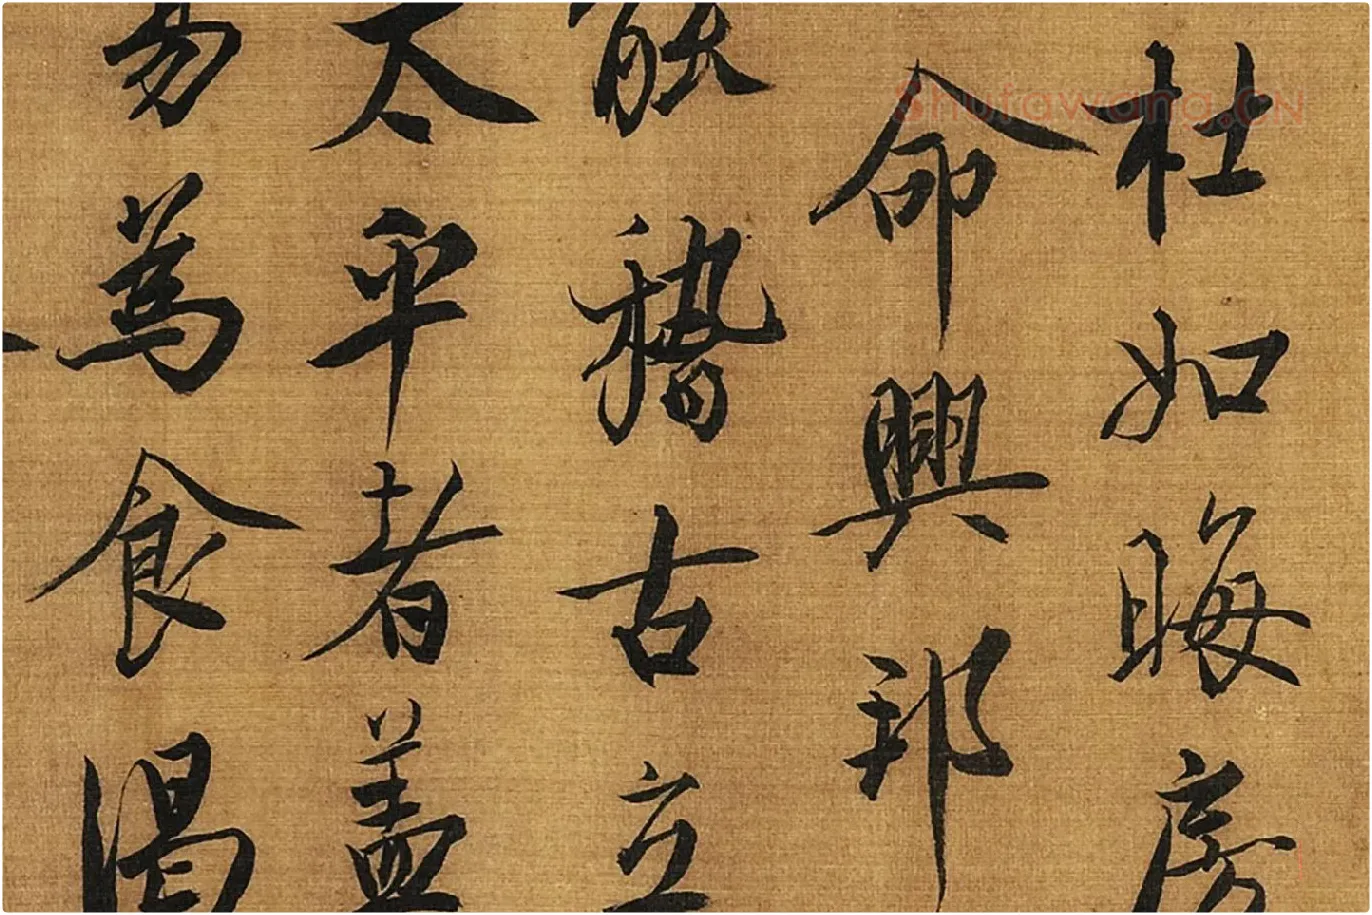 杜如晦房
命興邦
能稽古立
太平者蓋
易為食渴
Shufawang.CN